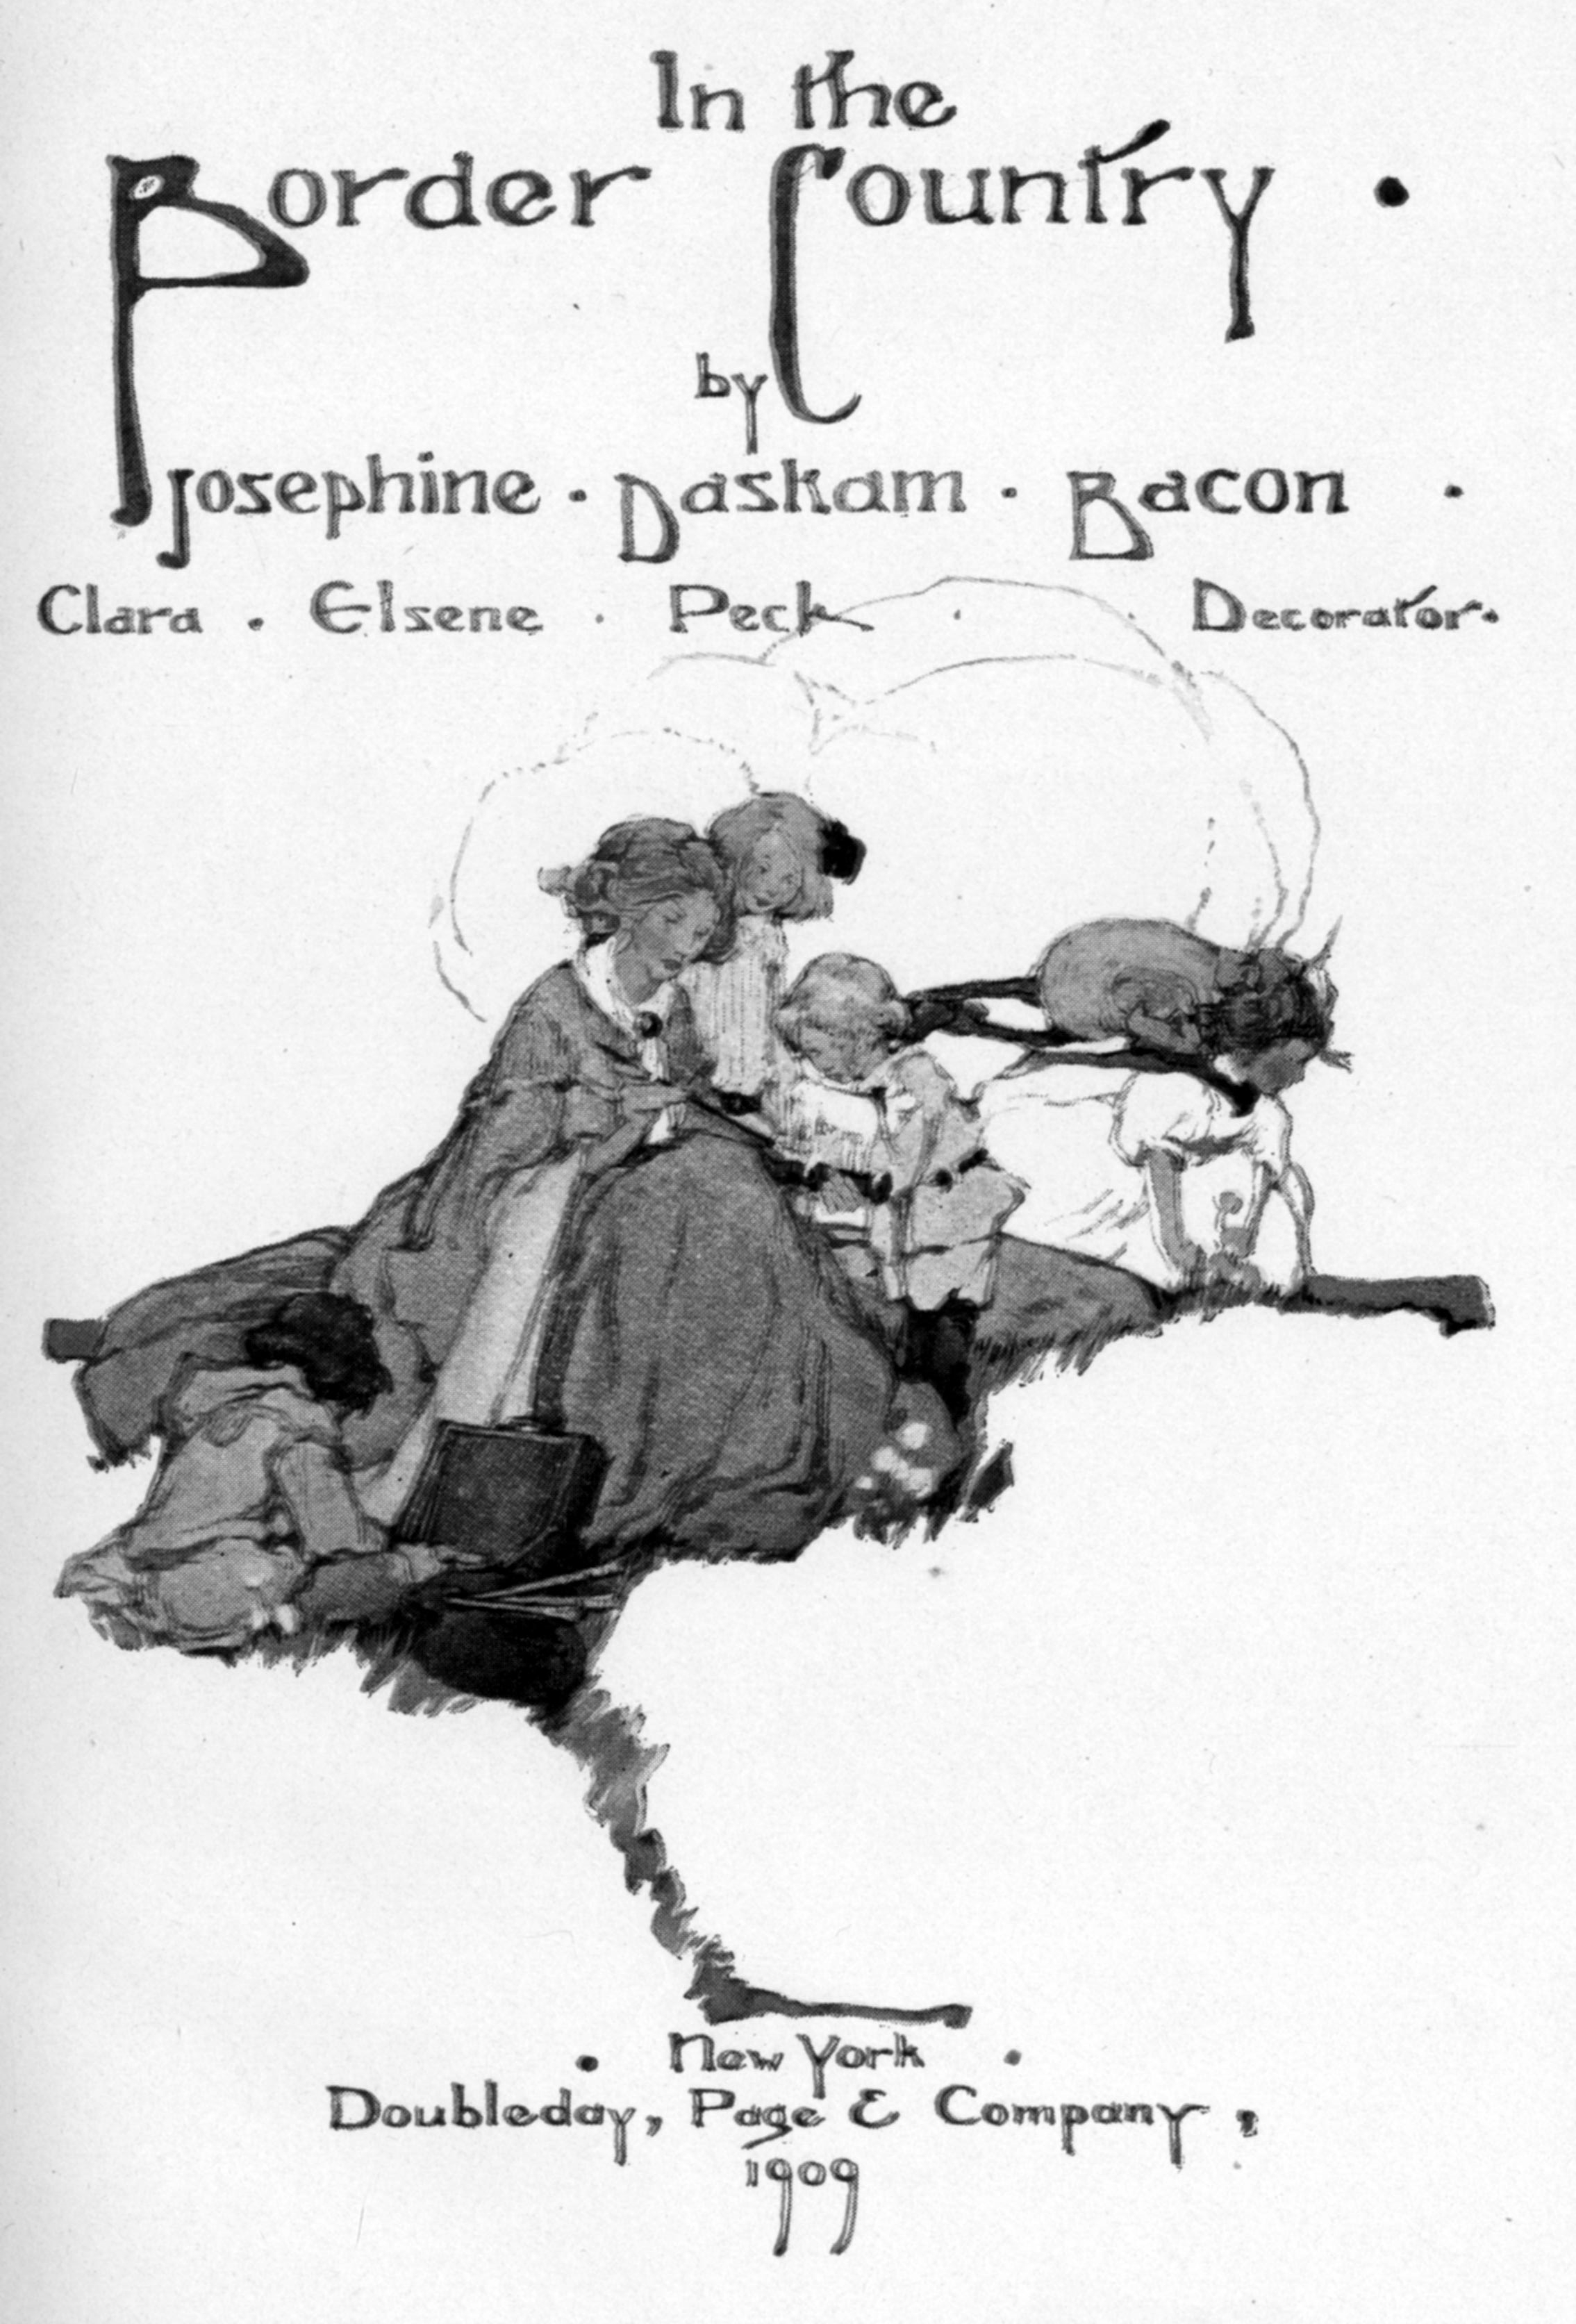 In the
Border Country .
by
Josephine . Daskam . Bacon .
Clara . Elsene . Peck . . Decorator.
. New York .
Doubleday, Page & Company,
1909